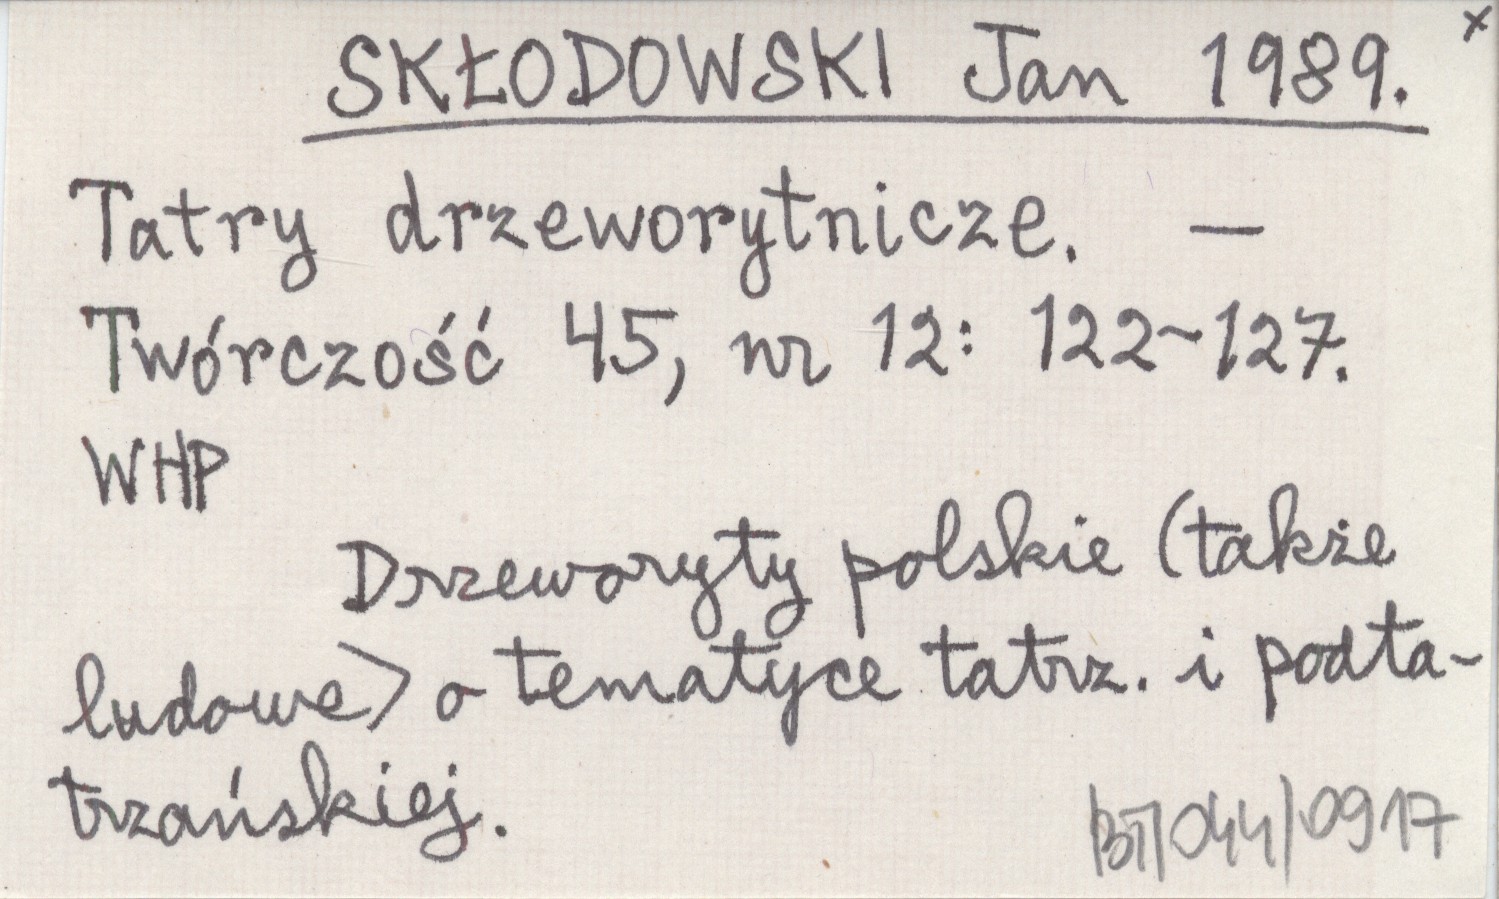 x
SKŁODOWSKI Jan 1989.
Tatry drzeworytnicze. —
Twórczość 45, nr 12: 122-127.
WHP
Drzeworyty polskie (także
ludowe) o tematyce tatrz. i podta-
trzańskiej.
BT/044/0917